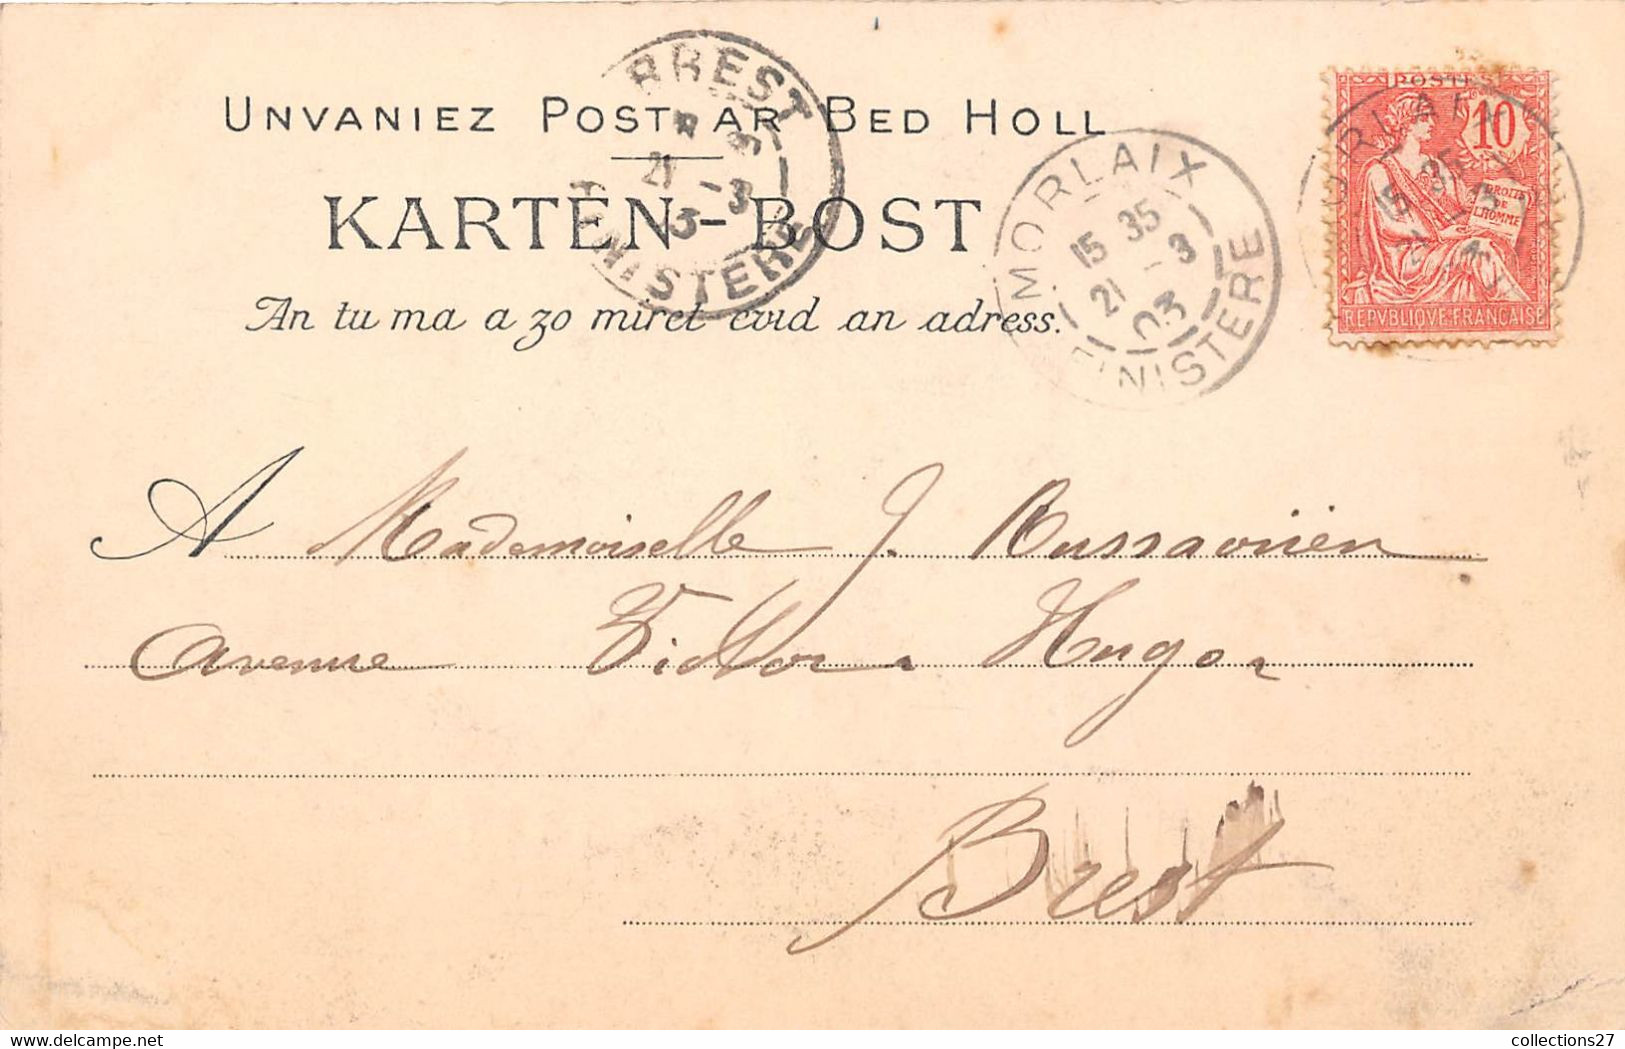 UNVANIEZ POST AR BED HOLL
KARTEN-BOST
An tu ma a zo miret evid an adress.
BREST
21 -3
3
FINISTERE
MORLAIX
15 35
21 -3
03
FINISTERE
POSTES
10
DROITS
DE
L'HOMME
REPVBLIQVE FRANÇAISE
MORLAIX
15 35
A Mademoiselle J.
Avenue Victor Hugo
Brest
collections27